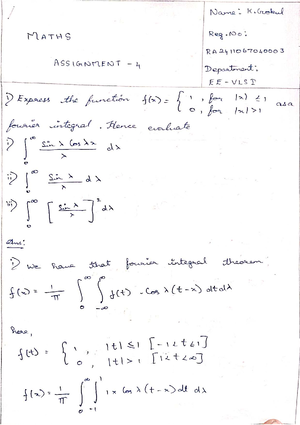 Name: K. Gokul
MATHS
Reg.No:
RA2411067040003
ASSIGNMENT - 4
Department:
EE-VLSI
1) Express the function f(x) = { 1, for |x| ≤ 1
0, for |x| > 1 as a
fourier integral. Hence evaluate
i) ∫₀^∞ Sin λ Cos λx / λ dλ
ii) ∫₀^∞ Sin λ / λ dλ
iii) ∫₀^∞ [Sin λ / λ]² dλ
Ans:
i) We have that fourier integral theorem
f(x) = 1/π ∫₀^∞ ∫₋∞^∞ f(t) - Cos λ(t-x) dt dλ
here,
f(t) = { 1, |t| ≤ 1 [-1<t≤1]
0, |t| > 1 [1<t<∞]
f(x) = 1/π ∫₀^∞ ∫₋₁^1 1 × Cos λ(t-x) dt dλ